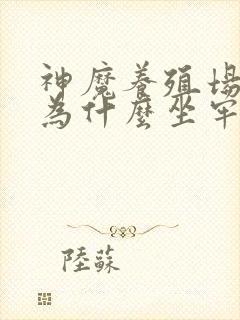 神魔養殖場
為什麼坐牢
陸蘇